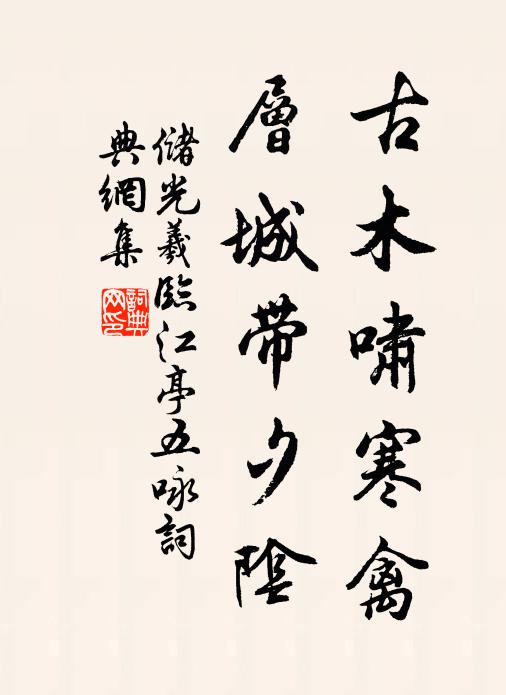 古木嘯寒禽
層城帶夕陰
儲光羲臨江亭五咏詞
典網集
詞典網印